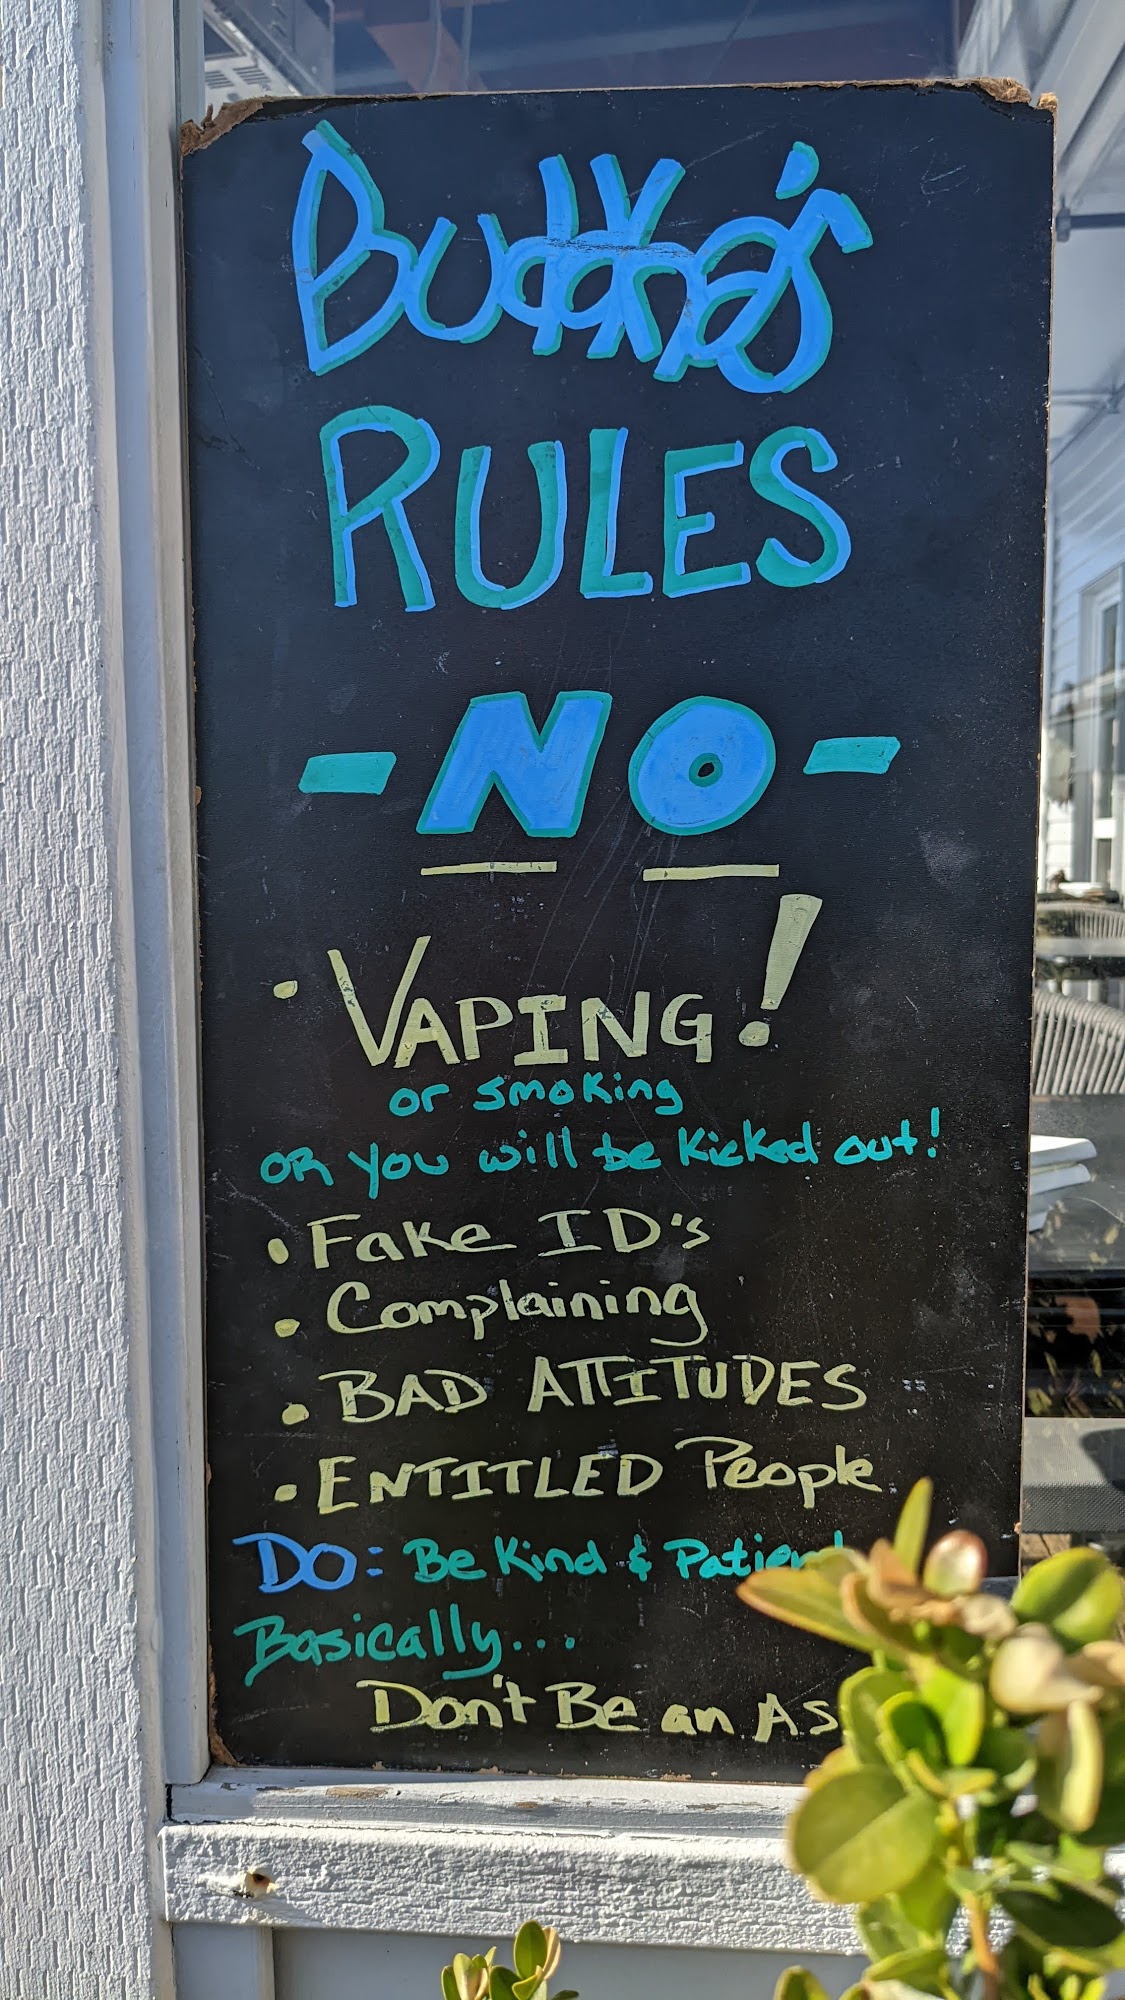 Buddha's
RULES
- NO -
• VAPING!
or smoking
OR you will be kicked out!
• Fake ID's
• Complaining
• BAD ATTITUDES
• ENTITLED People
DO: Be Kind & Patient
Basically...
Don't Be an As